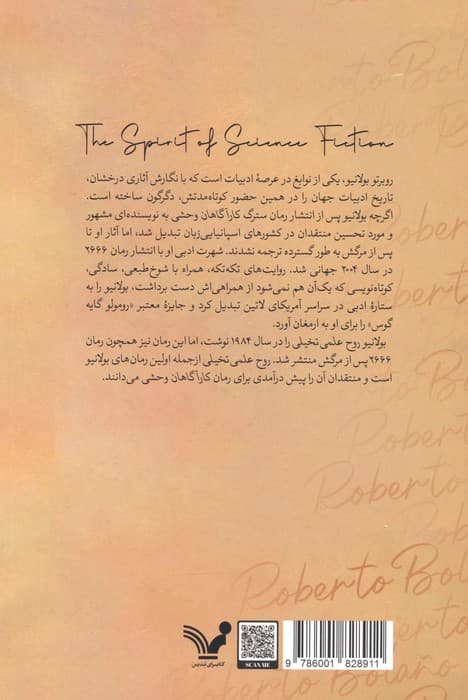 The Spirit of Science Fiction
روبرتو بولانیو، یکی از نوابغ در عرصهٔ ادبیات است که با نگارش آثاری درخشان،
تاریخ ادبیات جهان را در همین حضور کوتاه‌مدتش، دگرگون ساخته است.
اگرچه بولانیو پس از انتشار رمان سترگ کارآگاهان وحشی به نویسنده‌ای مشهور
و مورد تحسین منتقدان در کشورهای اسپانیایی‌زبان تبدیل شد، اما آثار او تا
پس از مرگش به طور گسترده ترجمه نشدند. شهرت ادبی او با انتشار رمان ۲۶۶۶
در سال ۲۰۰۴ جهانی شد. روایت‌های تکه‌تکه، همراه با شوخ‌طبعی، سادگی،
کوتاه‌نویسی که یک‌آن هم نمی‌شود از همراهی‌اش دست برداشت، بولانیو را به
ستارهٔ ادبی در سراسر آمریکای لاتین تبدیل کرد و جایزهٔ معتبر «رومولو گایه
گوس» را برای او به ارمغان آورد.
بولانیو روح علمی تخیلی را در سال ۱۹۸۴ نوشت، اما این رمان نیز همچون رمان
۲۶۶۶ پس از مرگش منتشر شد. روح علمی تخیلی ازجمله اولین رمان‌های بولانیو
است و منتقدان آن را پیش درآمدی برای رمان کارآگاهان وحشی می‌دانند.
Roberto Bol
Roberto
Roberto
Roberto
Roberto B
Robert
Roberto
Roberto
Roberto Bol
Roberto
Roberto Bolaño
کتابسرای تندیس
SCAN ME
9 786001 828911